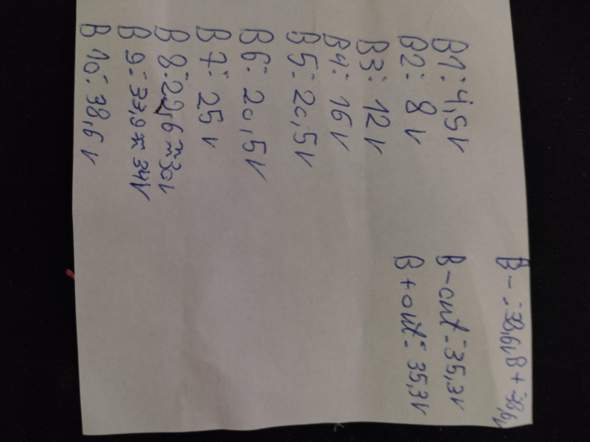 B1: 4,5v
B2: 8v
B3: 12v
B4: 16v
B5: 20,5v
B6: 20,5v
B7: 25v
B8: 29,6≈30v
B9: 33,9≈34v
B10: 38,6v
B- = 38,6v B+ = 38,6v
B-out = 35,3v
B+out = 35,3v